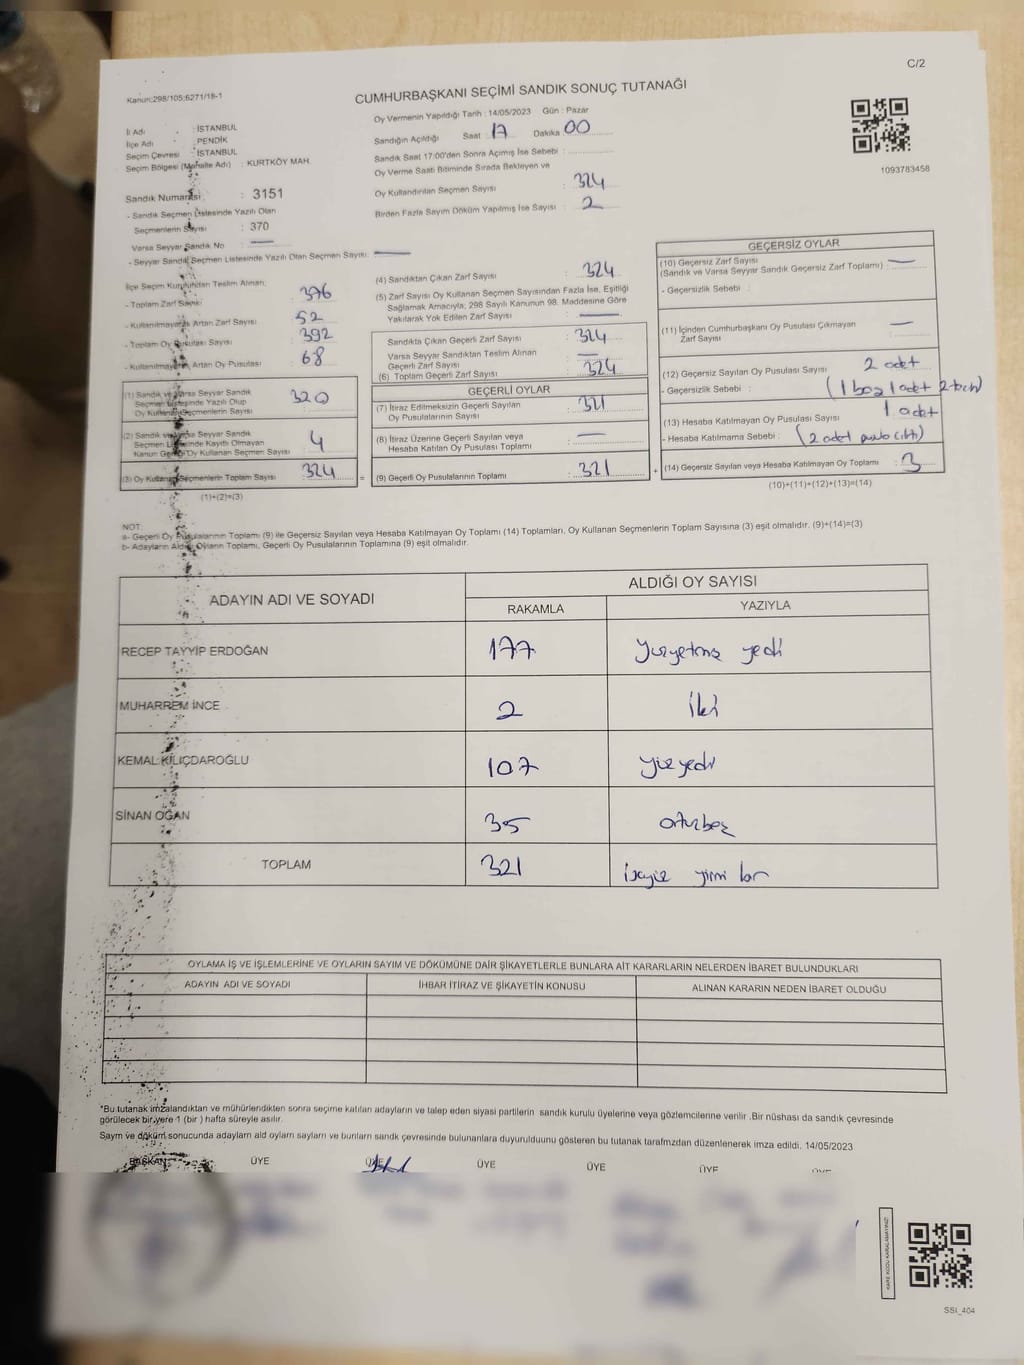 C/2
Kanun:298/105;6271/18-1
CUMHURBAŞKANI SEÇİMİ SANDIK SONUÇ TUTANAĞI
İl Adı : İSTANBUL
İlçe Adı : PENDİK
Seçim Çevresi : İSTANBUL
Seçim Bölgesi (Mahalle Adı) : KURTKÖY MAH.
Sandık Numarası : 3151
- Sandık Seçmen Listesinde Yazılı Olan
Seçmenlerin Sayısı : 370
Varsa Seyyar Sandık No :
- Seyyar Sandık Seçmen Listesinde Yazılı Olan Seçmen Sayısı :
Oy Vermenin Yapıldığı Tarih : 14/05/2023 Gün : Pazar
Sandığın Açıldığı Saat 17 Dakika 00
Sandık Saat 17:00'den Sonra Açımış İse Sebebi :
Oy Verme Saati Bitiminde Sırada Bekleyen ve
Oy Kullandırılan Seçmen Sayısı : 324
Birden Fazla Sayım Döküm Yapılmış İse Sayısı : 2
1093783458
İlçe Seçim Kurulundan Teslim Alınan;
- Toplam Zarf Sayısı : 376
- Kullanılmayarak Artan Zarf Sayısı : 52
- Toplam Oy Pusulası Sayısı : 392
- Kullanılmayarak Artan Oy Pusulası : 68
(1) Sandık ve Varsa Seyyar Sandık
Seçmen Listesinde Yazılı Olup
Oy Kullanan Seçmenlerin Sayısı : 320
(2) Sandık ve Varsa Seyyar Sandık
Seçmen Listesinde Kayıtlı Olmayan
Kanun Gereği Oy Kullanan Seçmen Sayısı : 4
(3) Oy Kullanan Seçmenlerin Toplam Sayısı : 324
(1)+(2)=(3)
(4) Sandıktan Çıkan Zarf Sayısı : 324
(5) Zarf Sayısı Oy Kullanan Seçmen Sayısından Fazla İse, Eşitliği
Sağlamak Amacıyla; 298 Sayılı Kanunun 98. Maddesine Göre
Yakılarak Yok Edilen Zarf Sayısı :
Sandıkta Çıkan Geçerli Zarf Sayısı : 324
Varsa Seyyar Sandıktan Teslim Alınan
Geçerli Zarf Sayısı :
(6) Toplam Geçerli Zarf Sayısı : 324
GEÇERLİ OYLAR
(7) İtiraz Edilmeksizin Geçerli Sayılan
Oy Pusulalarının Sayısı : 321
(8) İtiraz Üzerine Geçerli Sayılan veya
Hesaba Katılan Oy Pusulası Sayısı :
(9) Geçerli Oy Pusulalarının Toplamı : 321
GEÇERSİZ OYLAR
(10) Geçersiz Zarf Sayısı
(Sandık ve Varsa Seyyar Sandık Geçersiz Zarf Toplamı) :
- Geçersizlik Sebebi :
(11) İçinden Cumhurbaşkanı Oy Pusulası Çıkmayan
Zarf Sayısı :
(12) Geçersiz Sayılan Oy Pusulası Sayısı : 2 adet
- Geçersizlik Sebebi : (1 boş 1 adet 2 tercih)
(13) Hesaba Katılmayan Oy Pusulası Sayısı : 1 adet
- Hesaba Katılmama Sebebi : (2 adet pusula çıktı)
(14) Geçersiz Sayılan veya Hesaba Katılmayan Oy Toplamı : 3
(10)+(11)+(12)+(13)=(14)
NOT:
a- Geçerli Oy Pusulalarının Toplamı (9) ile Geçersiz Sayılan veya Hesaba Katılmayan Oy Toplamı (14) Toplamları, Oy Kullanan Seçmenlerin Toplam Sayısına (3) eşit olmalıdır. (9)+(14)=(3)
b- Adayların Aldığı Oyların Toplamı, Geçerli Oy Pusulalarının Toplamına (9) eşit olmalıdır.
ADAYIN ADI VE SOYADI
ALDIĞI OY SAYISI
RAKAMLA YAZIYLA
RECEP TAYYİP ERDOĞAN 177 Yüzyetmiş yedi
MUHARREM İNCE 2 iki
KEMAL KILIÇDAROĞLU 107 yüz yedi
SİNAN OĞAN 35 otuzbeş
TOPLAM 321 üçyüz yirmi bir
OYLAMA İŞ VE İŞLEMLERİNE VE OYLARIN SAYIM VE DÖKÜMÜNE DAİR ŞİKAYETLERLE BUNLARA AİT KARARLARIN NELERDEN İBARET BULUNDUKLARI
ADAYIN ADI VE SOYADI İHBAR İTİRAZ VE ŞİKAYETİN KONUSU ALINAN KARARIN NEDEN İBARET OLDUĞU
*Bu tutanak imzalandıktan ve mühürlendikten sonra seçime katılan adayların ve talep eden siyasi partilerin sandık kurulu üyelerine veya gözlemcilerine verilir .Bir nüshası da sandık çevresinde
görülecek bir yere 1 (bir ) hafta süreyle asılır.
Sayım ve döküm sonucunda adayların ald oyların sayıları ve bunların sandk çevresinde bulunanlara duyurulduunu gösteren bu tutanak tarafmzdan düzenlenerek imza edildi. 14/05/2023
BAŞKAN ÜYE ÜYE ÜYE ÜYE ÜYE ÜYE
KARE KODU KARALAMAYINIZ!
SSI_404